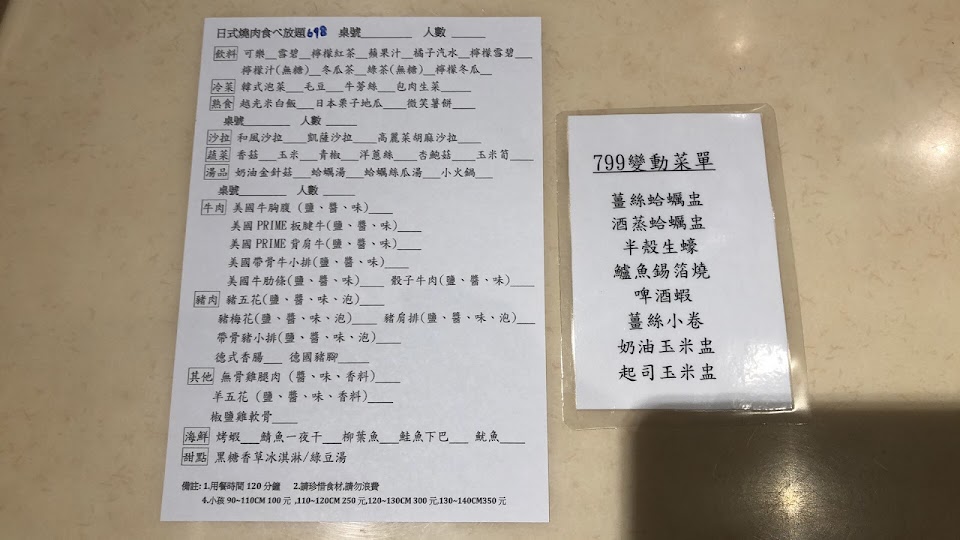 日式燒肉食べ放題698 桌號________ 人數 ______
飲料 可樂__雪碧__檸檬紅茶__蘋果汁__橘子汽水__檸檬雪碧___
檸檬汁(無糖)__冬瓜茶__綠茶(無糖)__檸檬冬瓜__
冷菜 韓式泡菜___毛豆___牛蒡絲___包肉生菜____
熟食 越光米白飯___日本栗子地瓜____微笑薯餅____
桌號_______ 人數 _____
沙拉 和風沙拉____凱薩沙拉____高麗菜胡麻沙拉____
蔬菜 香菇___玉米___青椒___洋蔥絲___杏鮑菇____玉米筍____
湯品 奶油金針菇___蛤蠣湯___蛤蠣絲瓜湯___小火鍋___
桌號________ 人數 _____
牛肉 美國牛胸腹 (鹽、醬、味)____
美國 PRIME 板腱牛(鹽、醬、味)____
美國 PRIME 背肩牛(鹽、醬、味)____
美國帶骨牛小排(鹽、醬、味)____
美國牛肋條(鹽、醬、味)____ 骰子牛肉(鹽、醬、味)____
豬肉 豬五花(鹽、醬、味、泡)____
豬梅花(鹽、醬、味、泡)____ 豬肩排(鹽、醬、味、泡)___
帶骨豬小排(鹽、醬、味、泡)____
德式香腸___ 德國豬腳_____
其他 無骨雞腿肉 (醬、味、香料)____
羊五花 (鹽、醬、味、香料)____
椒鹽雞軟骨____
海鮮 烤蝦___鯖魚一夜干___柳葉魚___鮭魚下巴___ 魷魚____
甜點 黑糖香草冰淇淋/綠豆湯
備註: 1.用餐時間 120 分鐘 2.請珍惜食材,請勿浪費
4.小孩 90~110CM 100 元 ,110~120CM 250 元,120~130CM 300 元,130~140CM350 元
799變動菜單
薑絲蛤蠣盅
酒蒸蛤蠣盅
半殼生蠔
鱸魚錫箔燒
啤酒蝦
薑絲小卷
奶油玉米盅
起司玉米盅